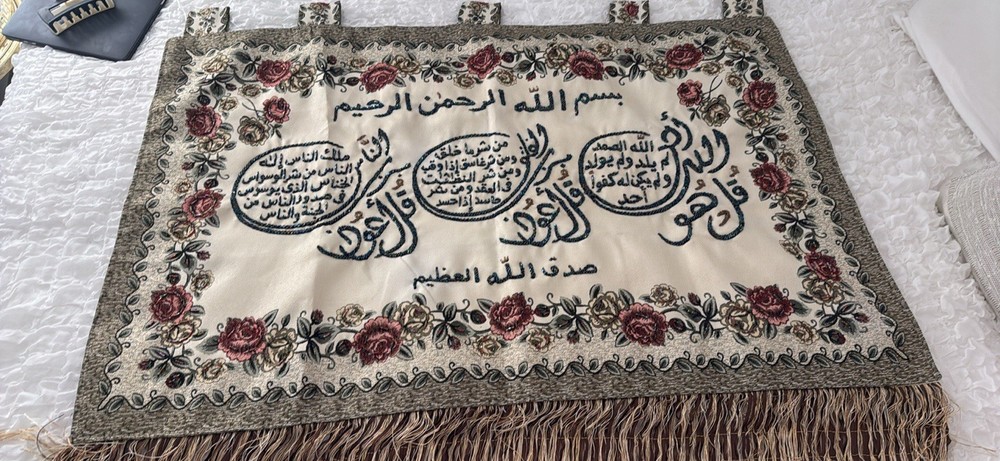 بسم الله الرحمن الرحيم
قل هو الله أحد
الله الصمد
لم يلد ولم يولد
ولم يكن له كفوا
أحد
قل أعوذ برب الفلق
من شر ما خلق
ومن شر غاسق إذا وقب
ومن شر النفاثات
في العقد ومن شر
حاسد إذا حسد
قل أعوذ برب الناس
ملك الناس إله
الناس من شر الوسواس
الخناس الذي يوسوس
في صدور الناس من
الجنة والناس
صدق الله العظيم